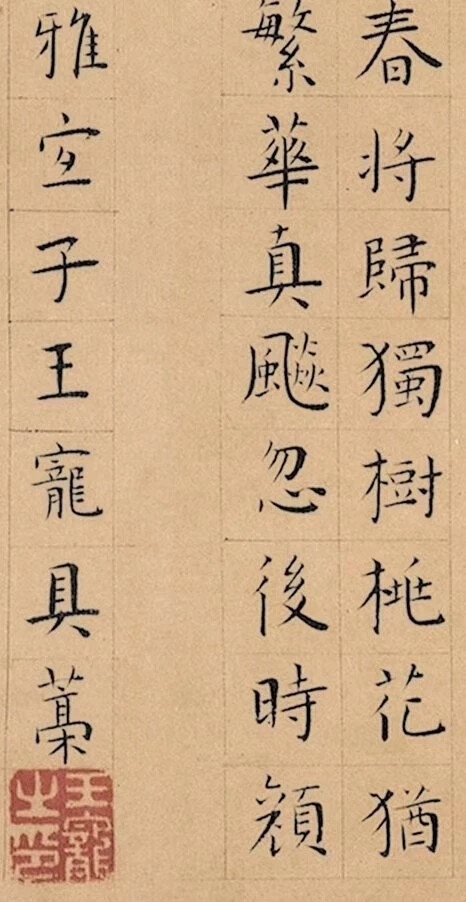 春將歸獨樹桃花猶
繁華真飈忽後時顏
雅宜子王寵具藁
王寵之印